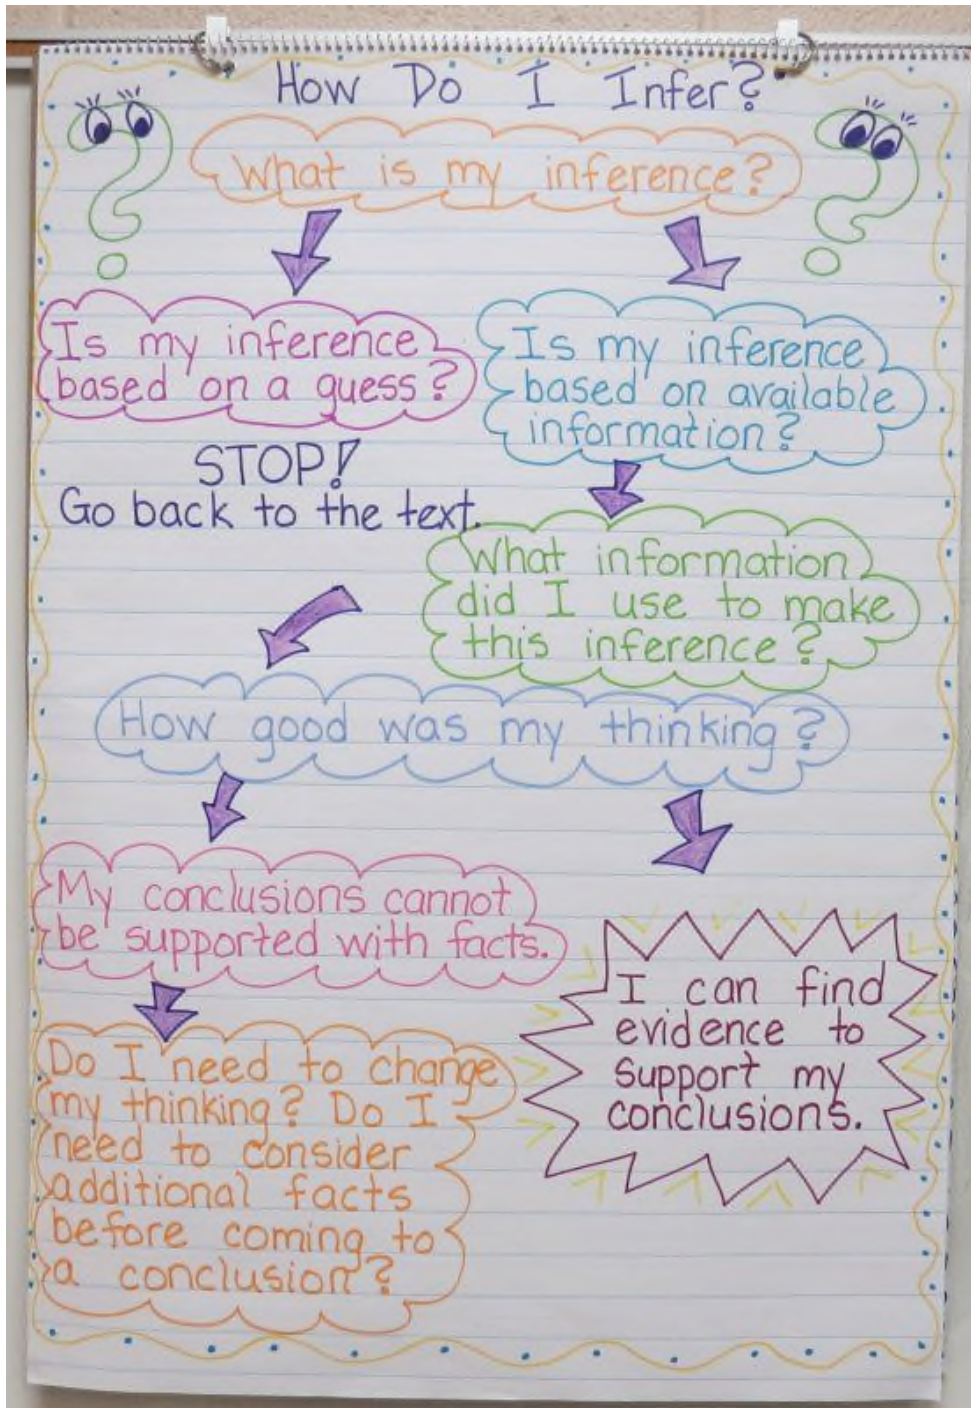 How Do I Infer?
What is my inference?
Is my inference
based on a guess?
STOP!
Go back to the text.
Is my inference
based on available
information?
What information
did I use to make
this inference?
How good was my thinking?
My conclusions cannot
be supported with facts.
Do I need to change
my thinking? Do I
need to consider
additional facts
before coming to
a conclusion?
I can find
evidence to
support my
conclusions.